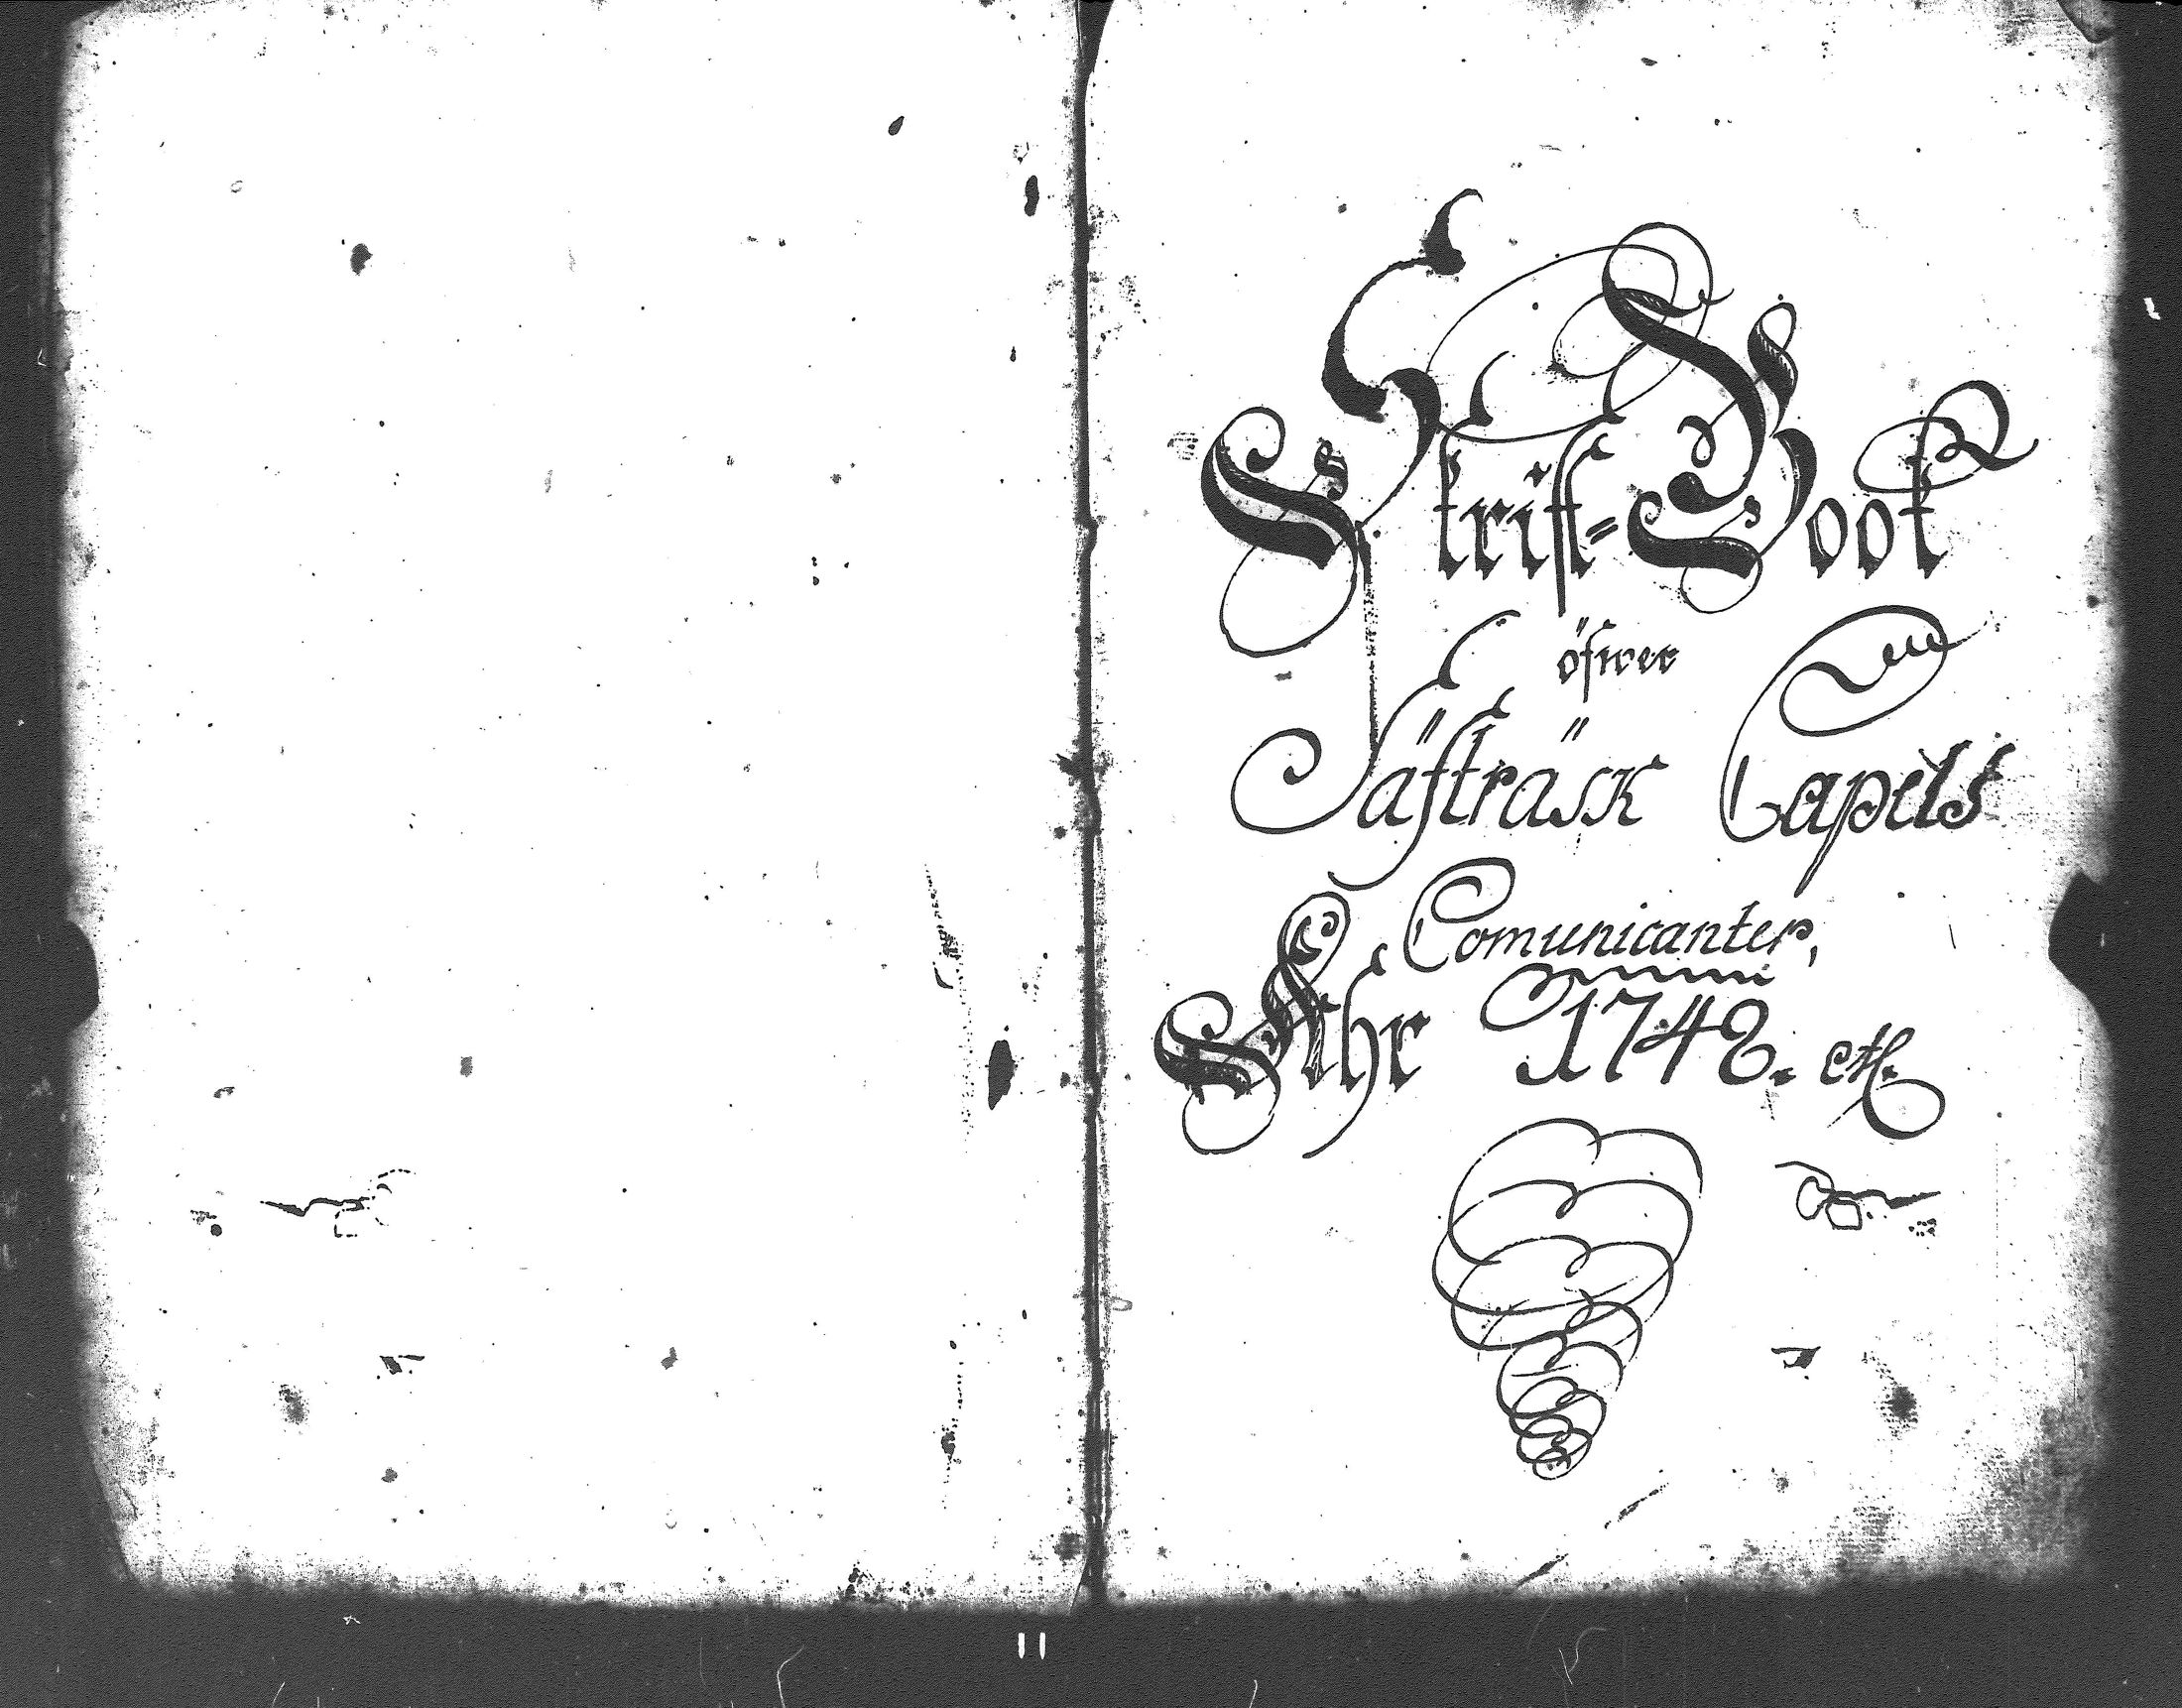 Skrift=Book
öfwer
Säfträsk Capels
Comunicanter,
Åhr 1742. etc.